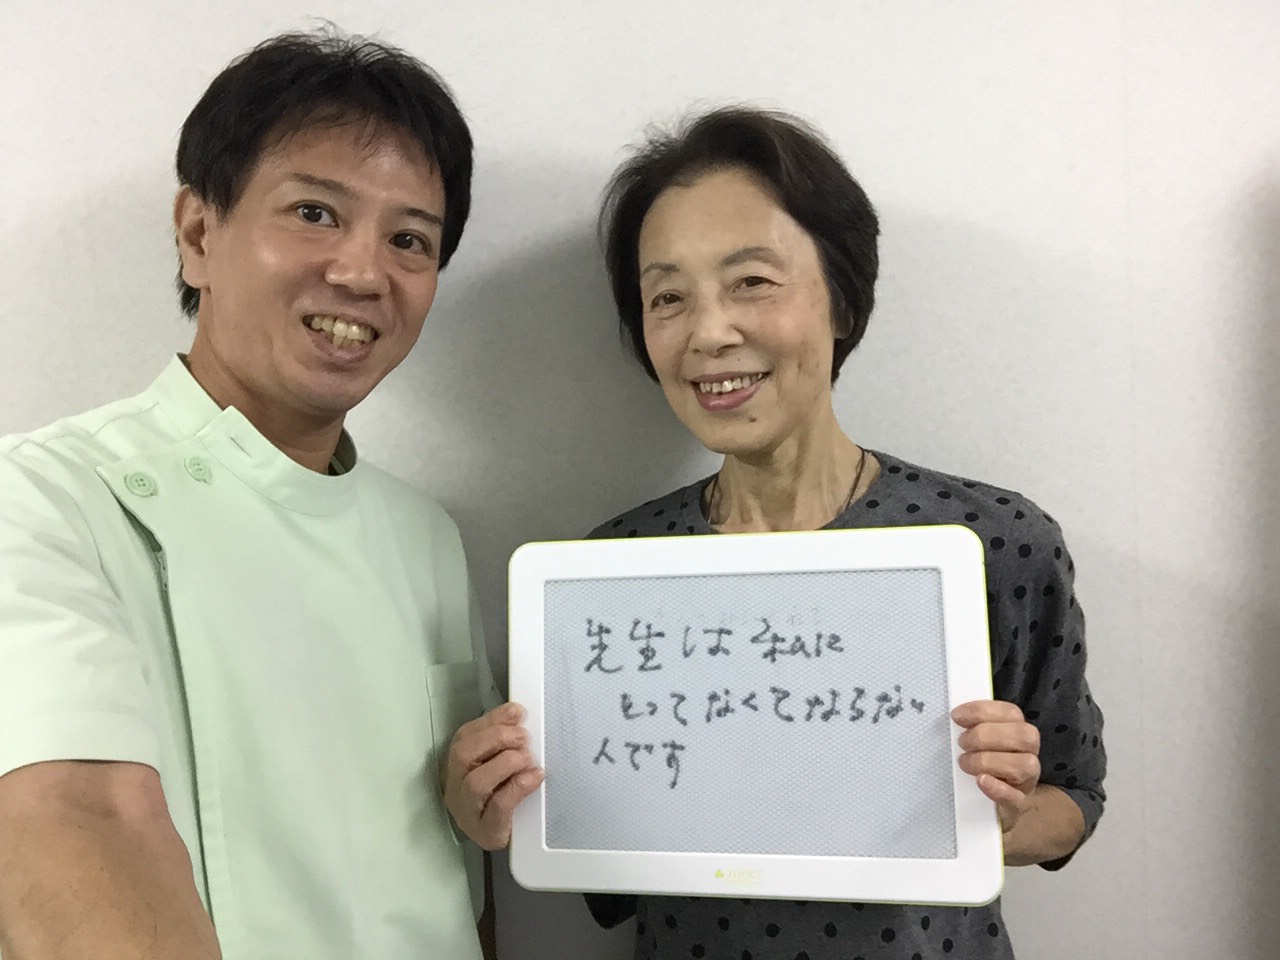 先生は私に
とってなくてならない
人です
JIKKY